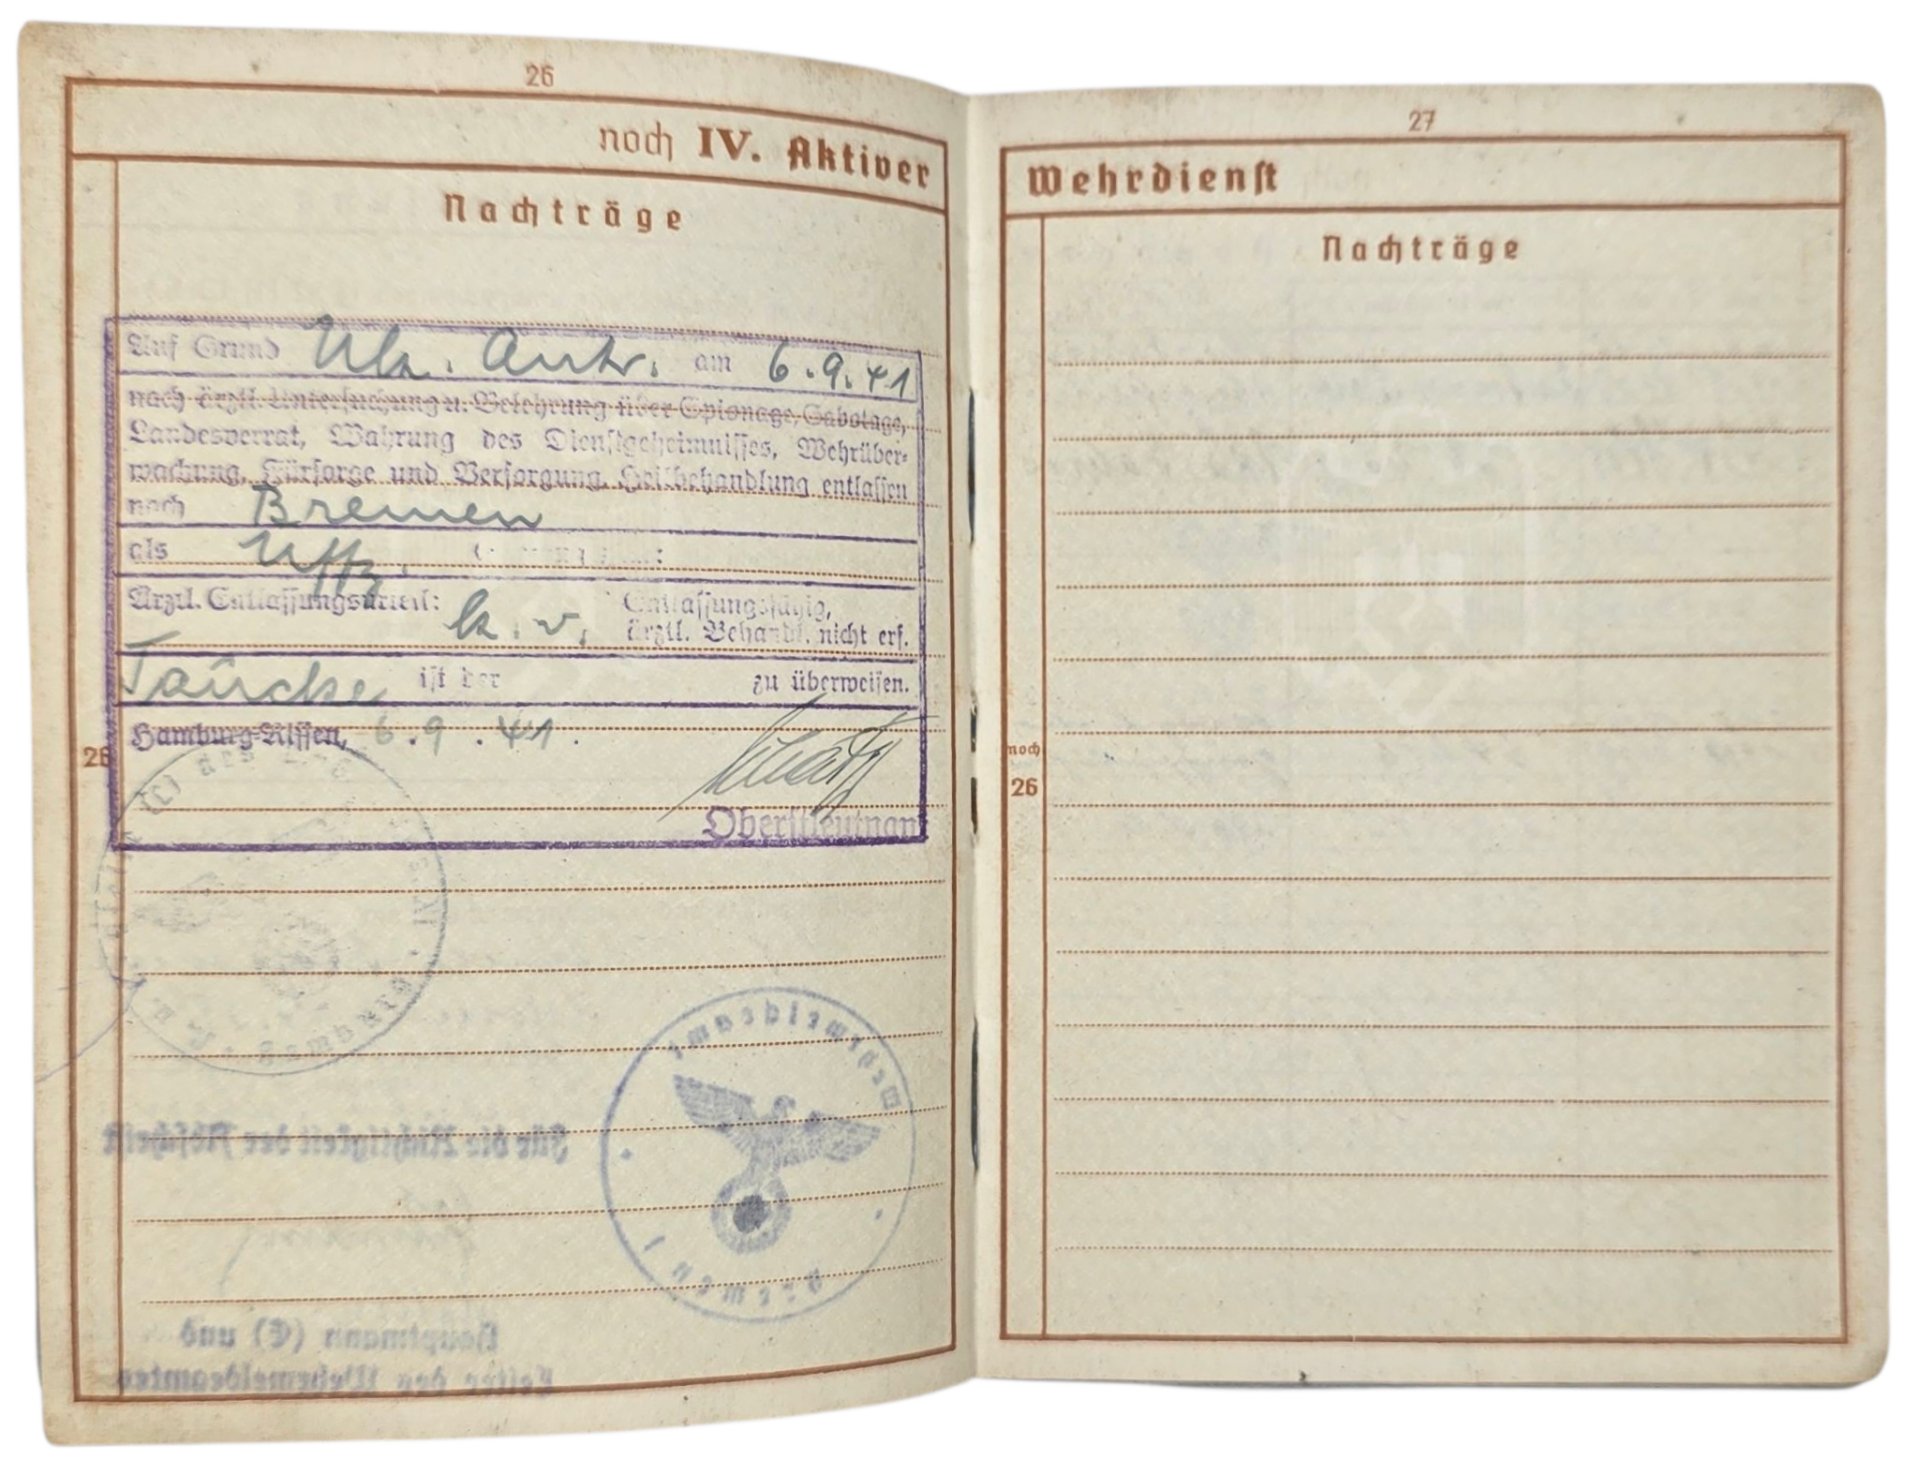 26
noch IV. Aktiver
Nachträge
Auf Grund Uk. Antr. am 6.9.41
nach ärztl. Untersuchung u. Belehrung über Spionage, Sabotage,
Landesverrat, Wahrung des Dienstgeheimnisses, Wehrüber-
wachung, Fürsorge und Versorgung, Heilbehandlung entlassen
nach Bremen
als Uffz.
Ärztl. Entlassungsurteil: k.v. Entlassungsfähig,
ärztl. Behandl. nicht erf.
Taucke ist der zu überweisen.
Hamburg-Rissen, 6.9.41.
26
Oberstleutnant
Hamburg
Wehrmeldeamt
Bremen 1
Für die Richtigkeit der Abschrift
Hauptmann (E) und
Leiter des Wehrmeldeamtes
27
Wehrdienst
Nachträge
noch
26